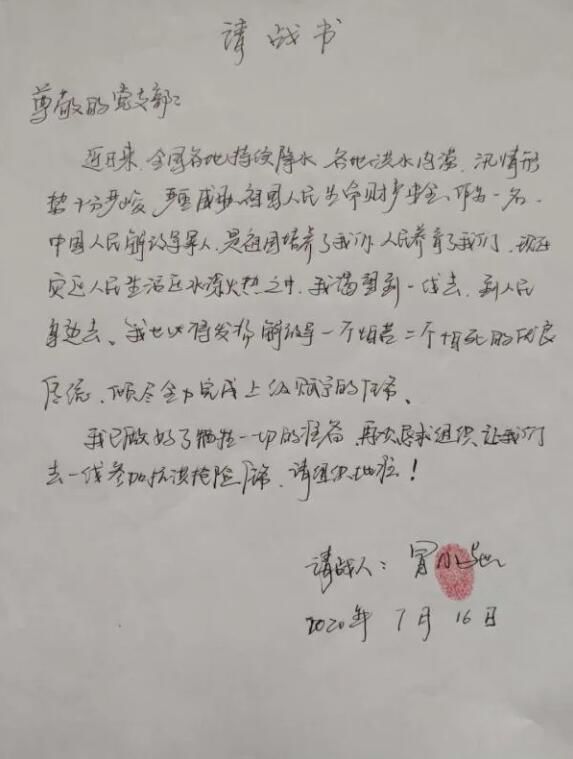 请战书
尊敬的党支部:
近日来,全国各地持续降水,各地洪水内涝,汛情形
势十分严峻,严重威胁祖国人民生命财产安全,作为一名
中国人民解放军军人,是祖国培养了我们,人民养育了我们,现在
灾区人民生活在水深火热之中,我渴望到一线去,到人民
身边去、我也必将发扬解放军一不怕苦二不怕死的优良
传统,倾尽全力完成上级赋予的任务、
我已做好了牺牲一切的准备,再次恳求组织,让我们
去一线参加抗洪抢险任务,请组织批准!
请战人:
2020年7月16日